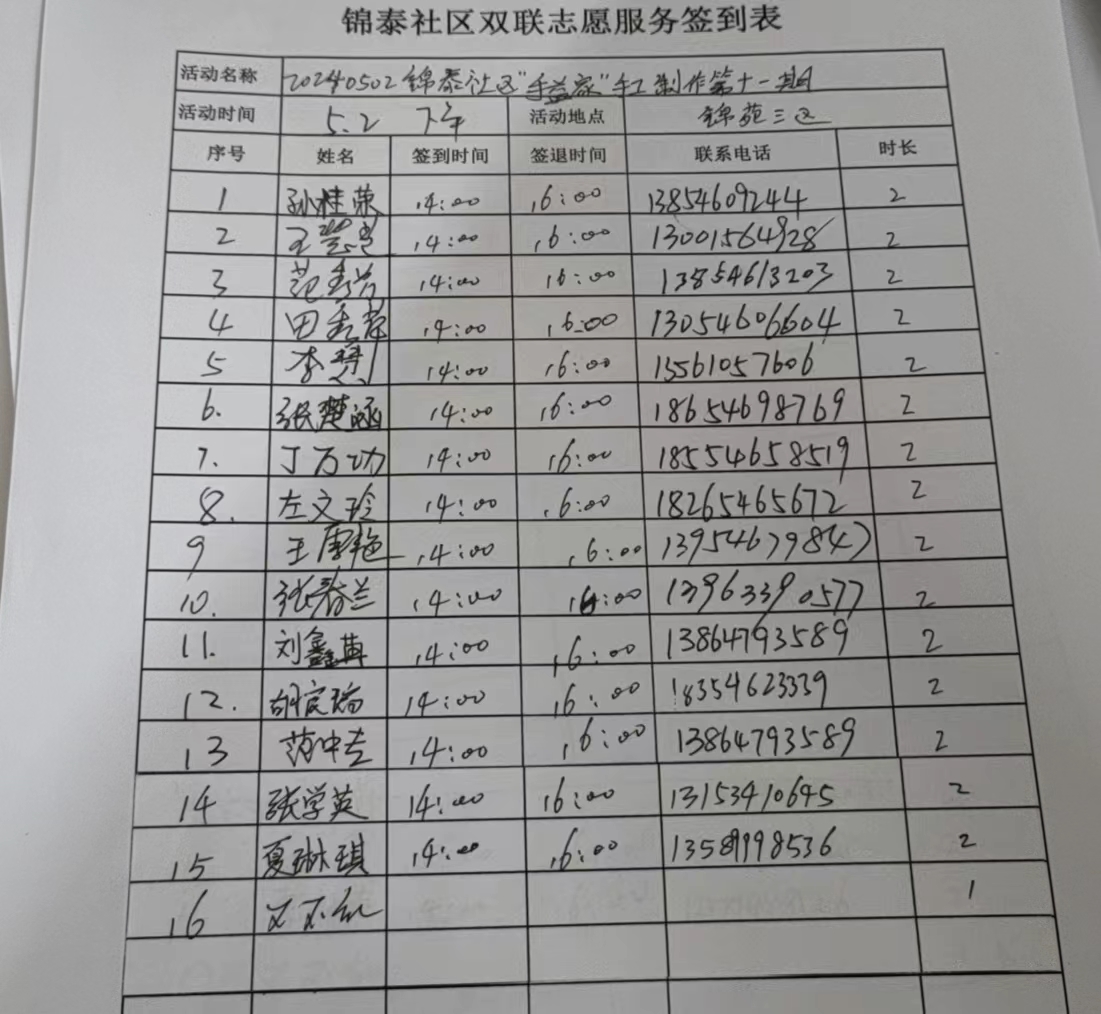 锦泰社区双联志愿服务签到表
活动名称 20240502锦泰社区"手益家"手工制作第十一期
活动时间 5.2 下午 活动地点 锦苑三区
序号 姓名 签到时间 签退时间 联系电话 时长
1 孙桂荣 14:00 16:00 13854609244 2
2 14:00 16:00 13001564928 2
3 范秀芳 14:00 16:00 13854613203 2
4 田秀 14:00 16:00 13054606604 2
5 李 14:00 16:00 15561057606 2
6. 张楚涵 14:00 16:00 18654698769 2
7. 丁万功 14:00 16:00 18554658519 2
8. 左文玲 14:00 16:00 18265465672 2
9 王雪艳 14:00 16:00 13954679847 2
10. 张春兰 14:00 16:00 13963390577 2
11. 刘鑫苒 14:00 16:00 13864793589 2
12. 胡宸瑞 14:00 16:00 18354623339 2
13 14:00 16:00 13864793589 2
14 张学英 14:00 16:00 13153410645 2
15 夏琳琪 14:00 16:00 13589998536 2
16 1